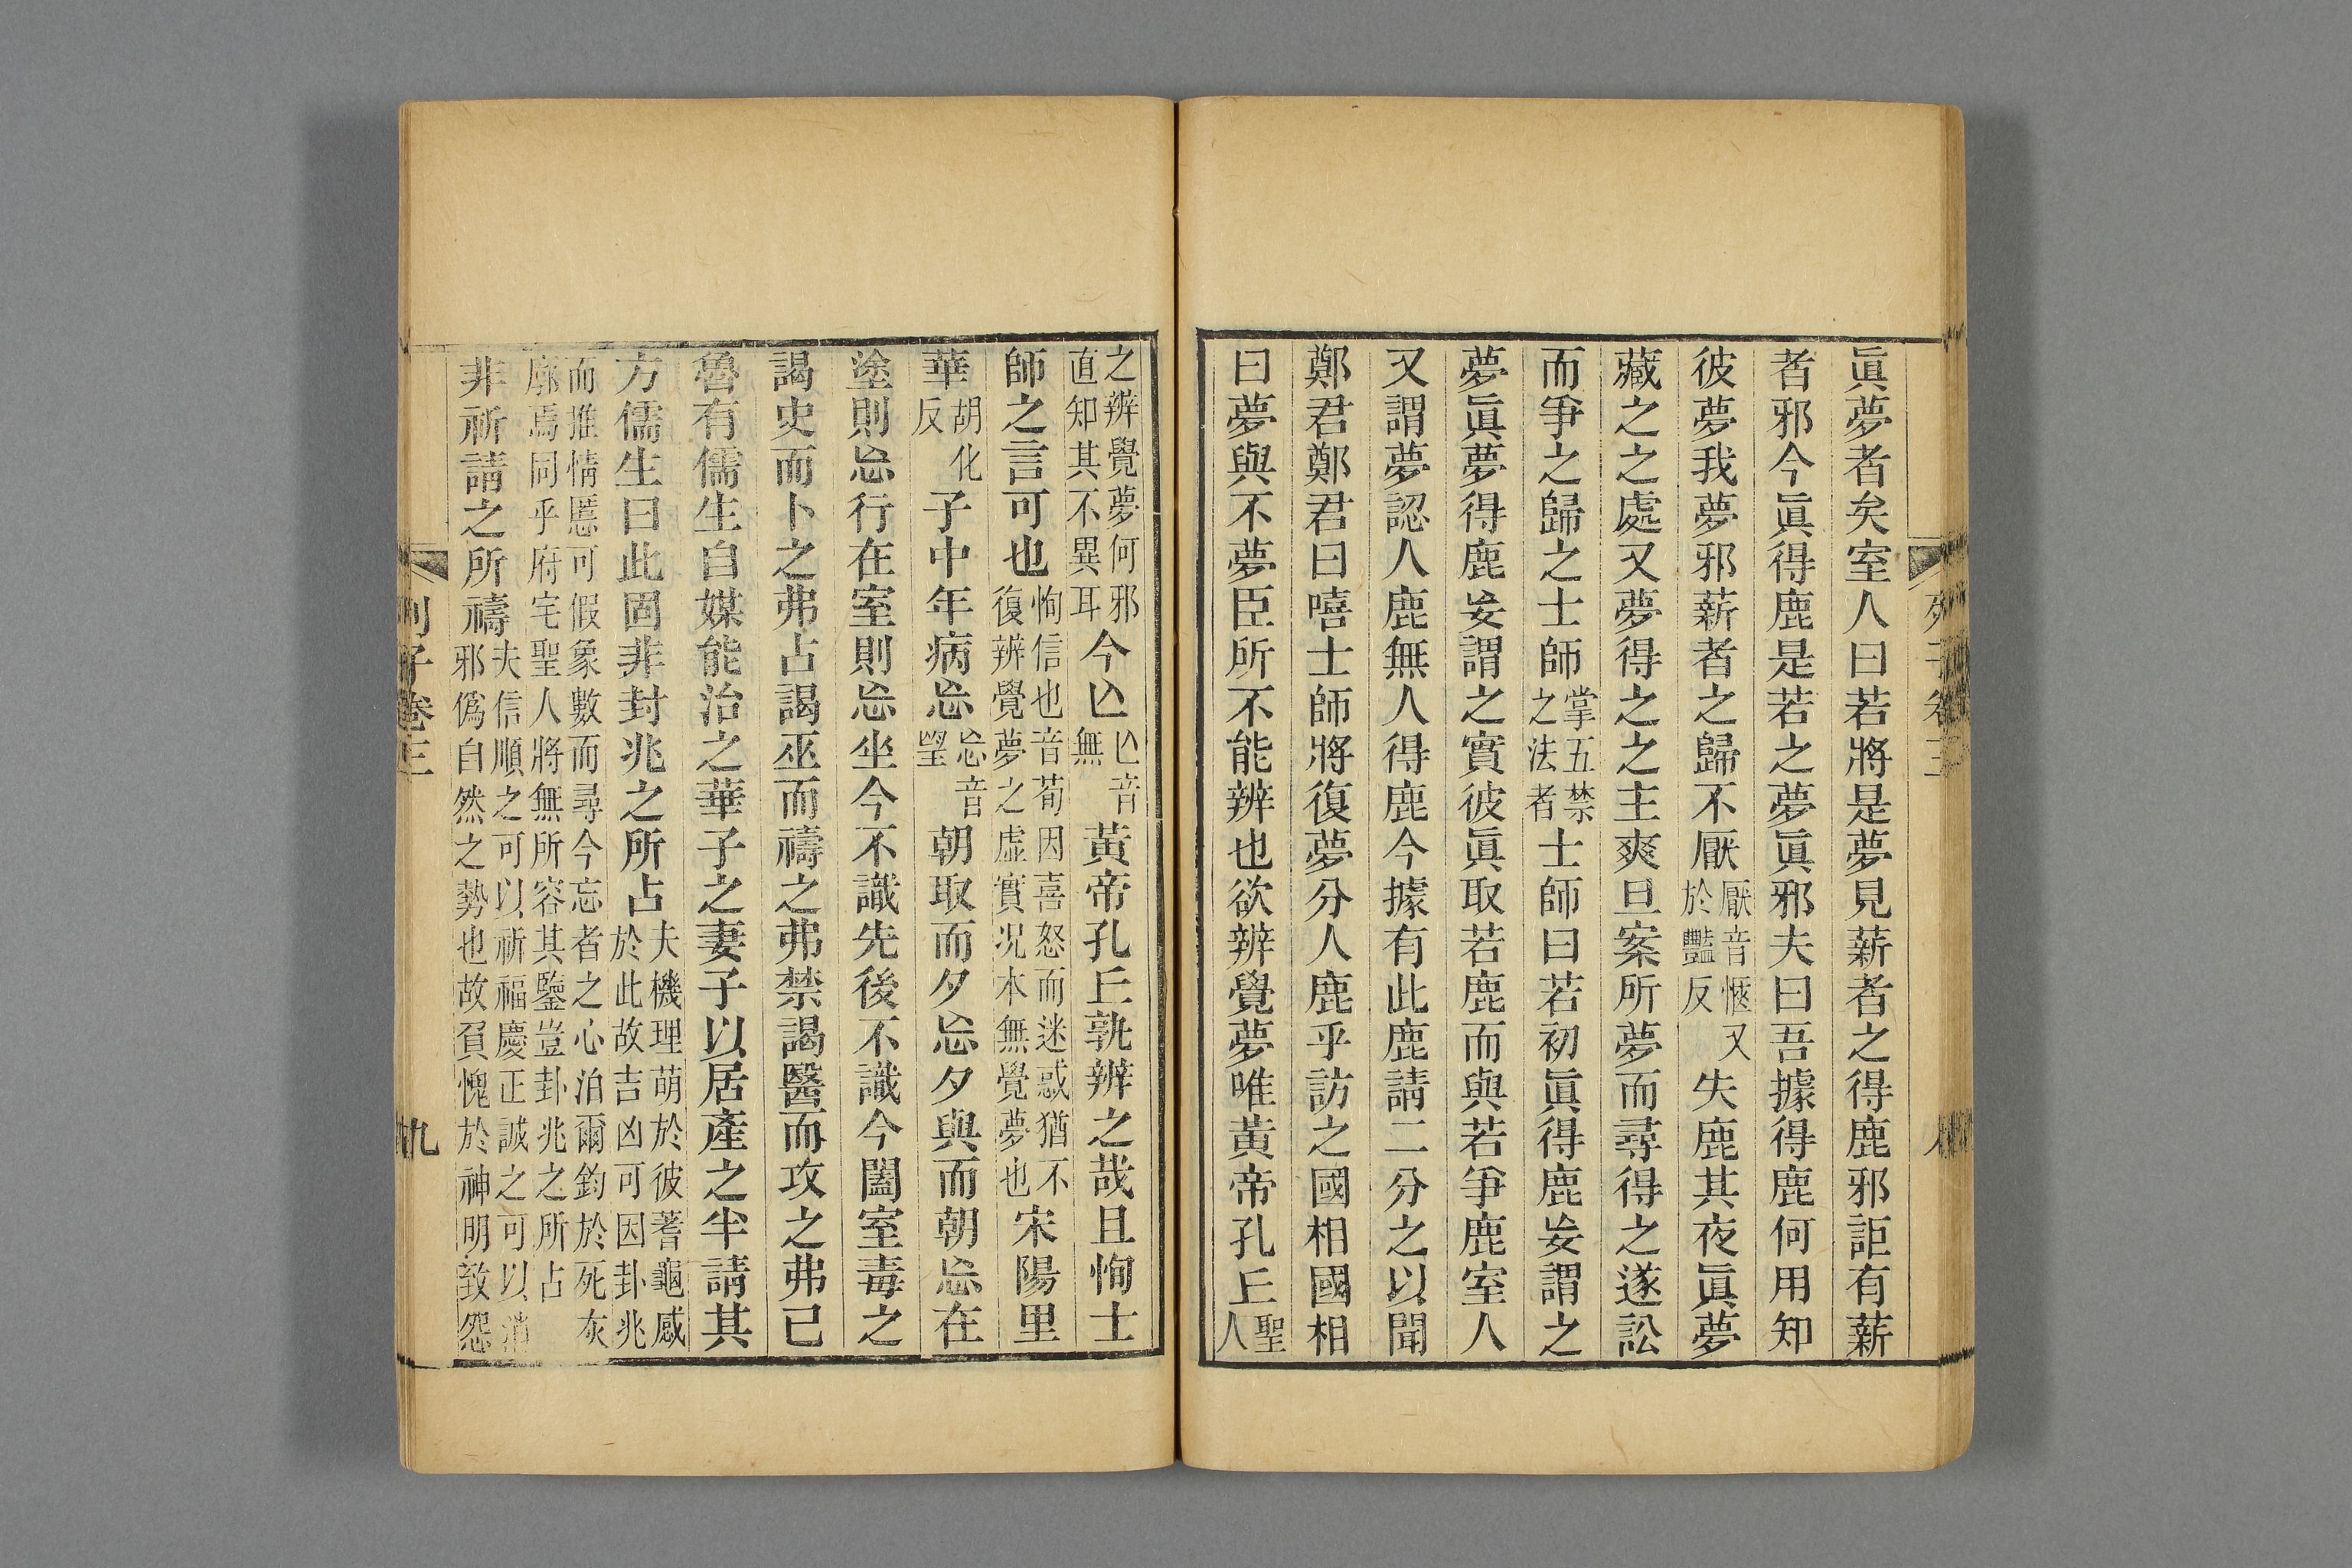 眞夢者矣室人曰若將是夢見薪者之得鹿邪詎有薪
者邪今眞得鹿是若之夢眞邪夫曰吾據得鹿何用知
彼夢我夢邪薪者之歸不厭厭音愜又於豔反失鹿其夜眞夢
藏之之處又夢得之之主爽旦案所夢而尋得之遂訟
而爭之歸之士師掌五禁之法者士師曰若初眞得鹿妄謂之
夢眞夢得鹿妄謂之實彼眞取若鹿而與若爭鹿室人
又謂夢認人鹿無人得鹿今據有此鹿請二分之以聞
鄭君鄭君曰嘻士師將復夢分人鹿乎訪之國相國相
曰夢與不夢臣所不能辨也欲辨覺夢唯黃帝孔丘聖人
之辨覺夢何邪直知其不異耳今亾亾音無黃帝孔丘孰辨之哉且恂士
師之言可也恂信也音荀因喜怒而迷惑猶不復辨覺夢之虛實况本無覺夢也宋陽里
華胡化反子中年病忘忘音朢朝取而夕忘夕與而朝忘在
塗則忘行在室則忘坐今不識先後不識今闔室毒之
謁史而卜之弗占謁巫而禱之弗禁謁醫而攻之弗已
魯有儒生自媒能治之華子之妻子以居產之半請其
方儒生曰此固非封兆之所占夫機理萌於彼蓍龜感於此故吉凶可因卦兆
而推情慝可假象數而尋今忘者之心泊爾鈞於死灰廓焉同乎府宅聖人將無所容其鑒豈卦兆之所占
非祈請之所禱夫信順之可以祈福慶正誠之可以消邪偽自然之勢也故負愧於神明致怨
列子卷三
九